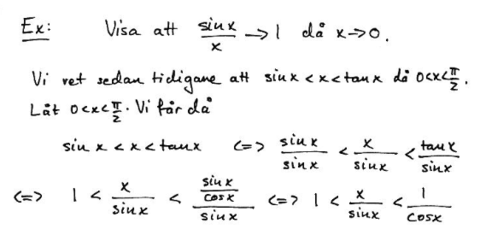 Ex: Visa att sinx/x → 1 då x→0.
Vi vet sedan tidigare att sinx < x < tanx då 0<x<π/2.
Låt 0<x<π/2. Vi får då
sinx < x < tanx <=> sinx/sinx < x/sinx < tanx/sinx
<=> 1 < x/sinx < (sinx/cosx)/sinx <=> 1 < x/sinx < 1/cosx